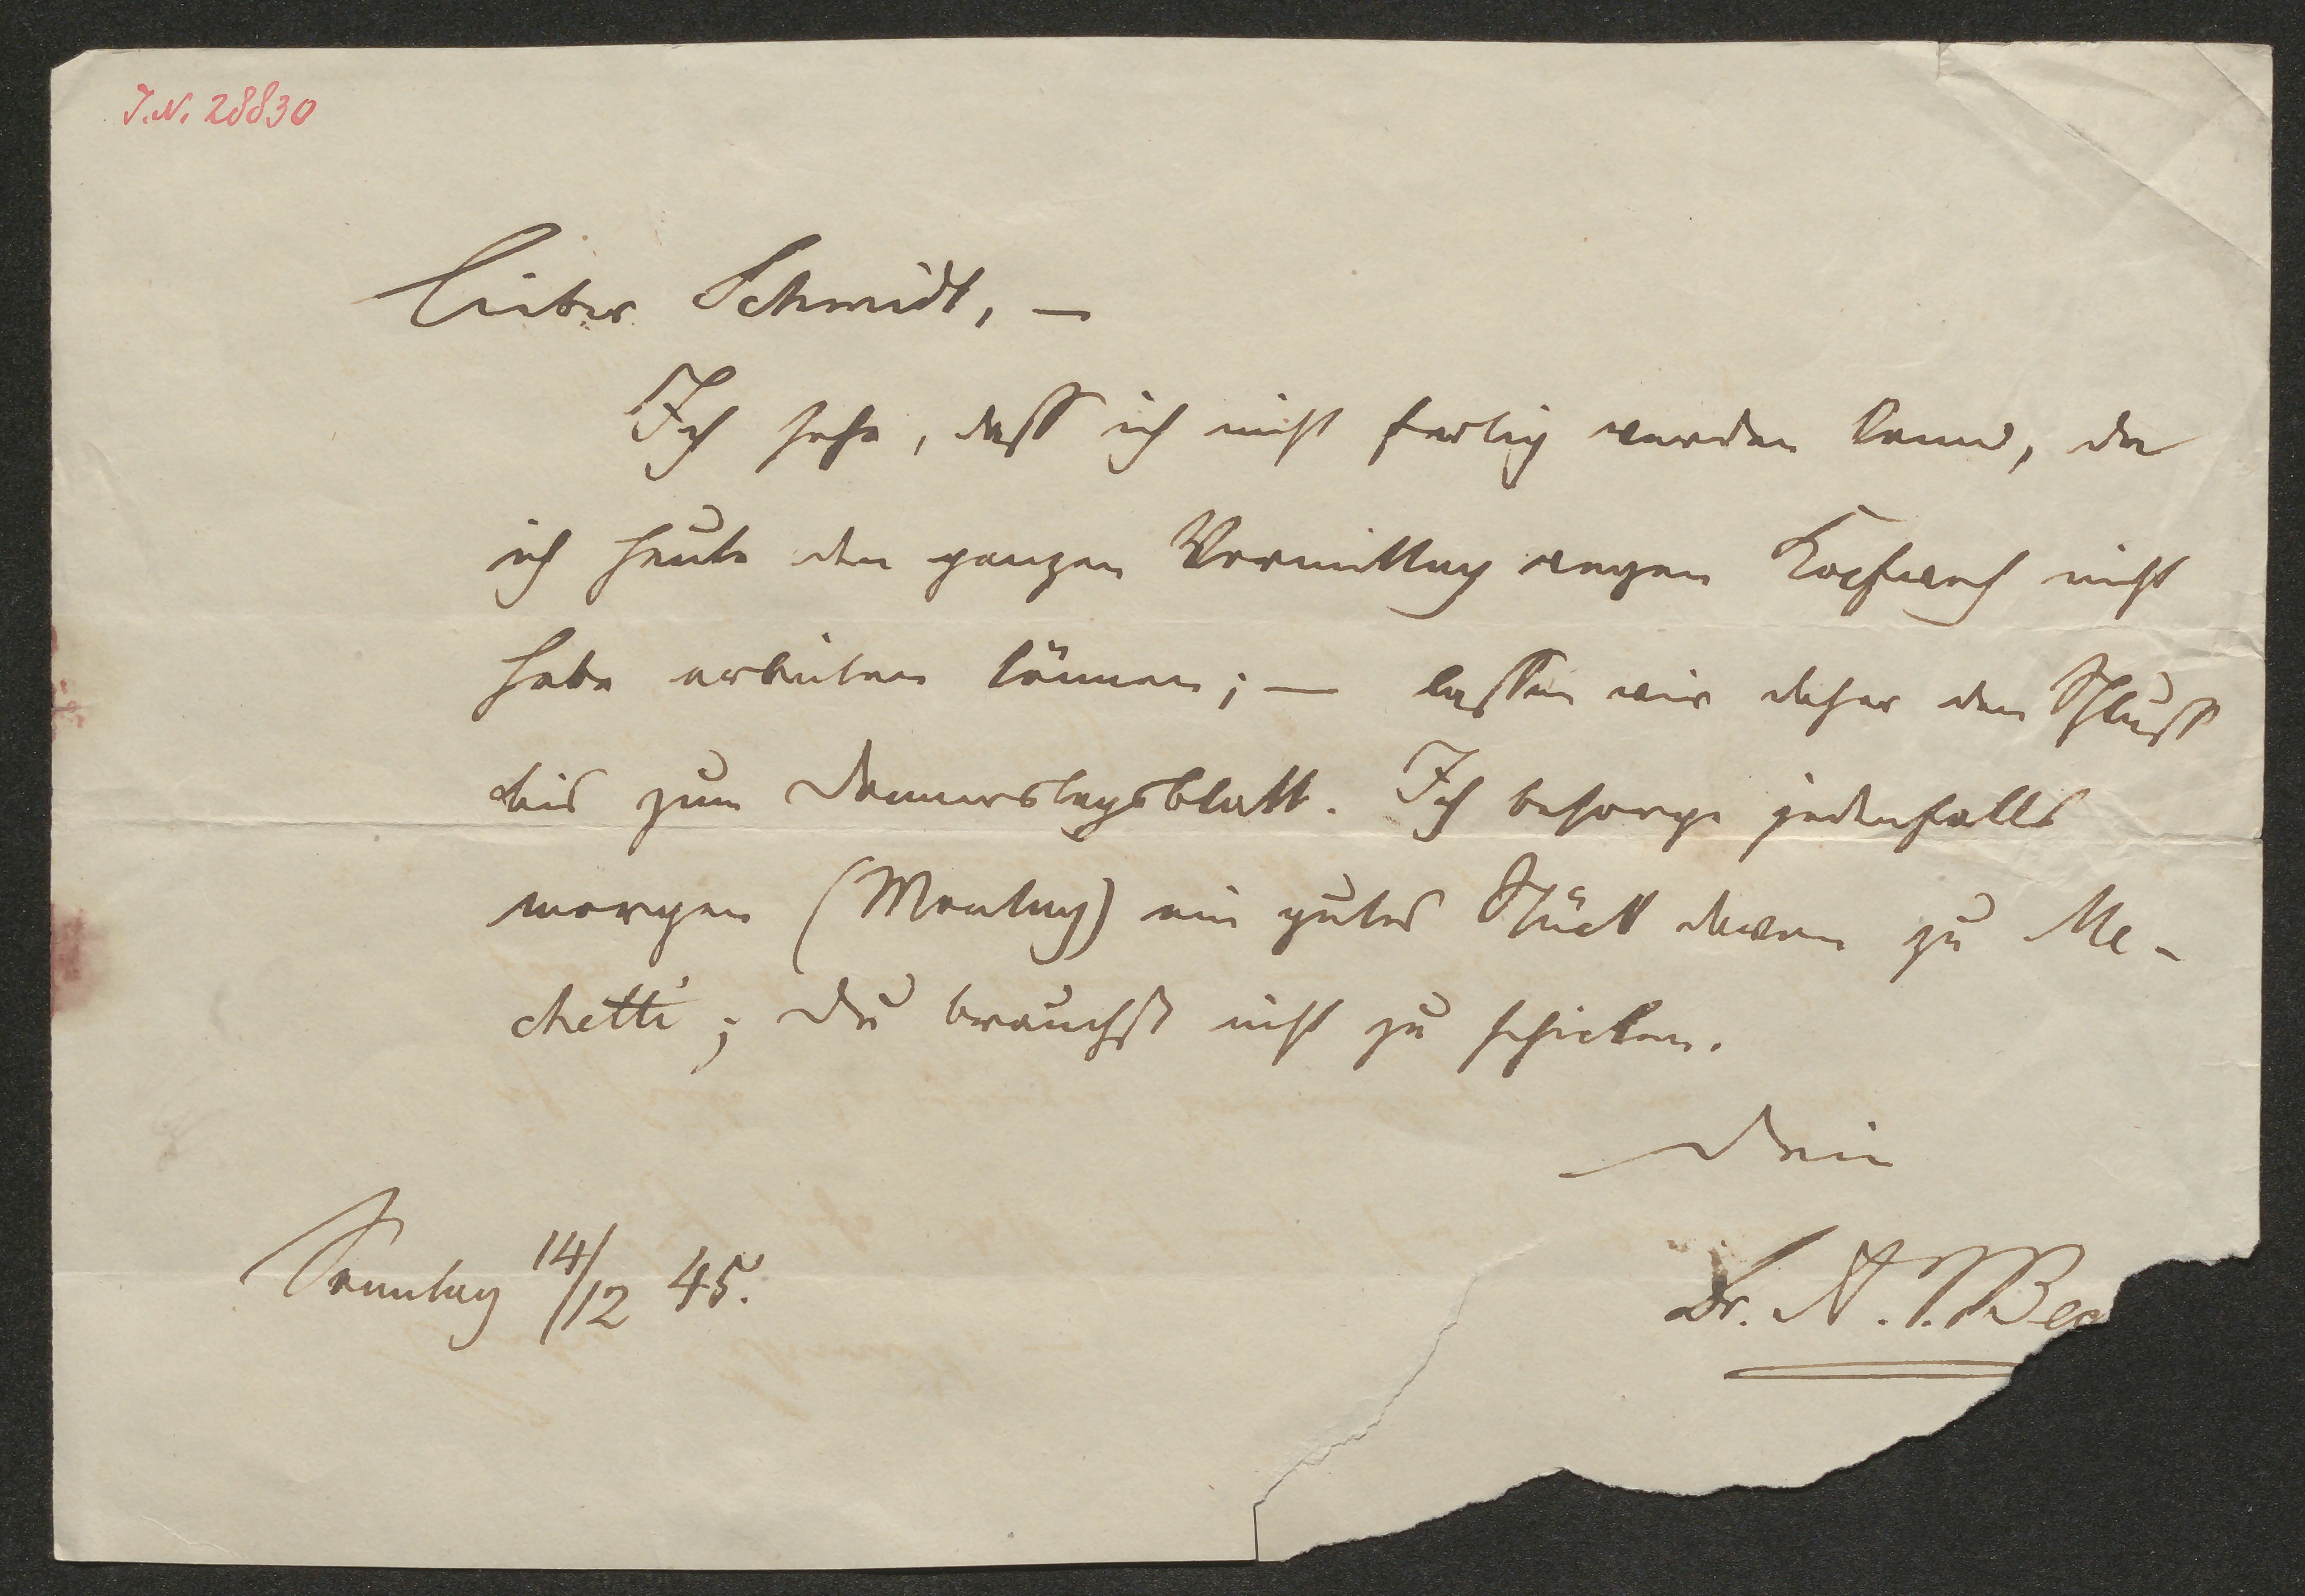 I.N. 28830
Lieber Schmidt, —
Ich sehe, dass ich nicht fertig werden kann, da
ich heute den ganzen Vormittag wegen Kopfweh nicht
habe arbeiten können; — lassen wir daher den Schluss
bis zum Donnerstagsblatt. Ich besorge jedenfalls
morgen (Montag) ein gutes Stück davon zu Me-
chetti; Du brauchst nicht zu schicken.
Dein
Dr. A. J. Bec
Sonntag 14/12 45.